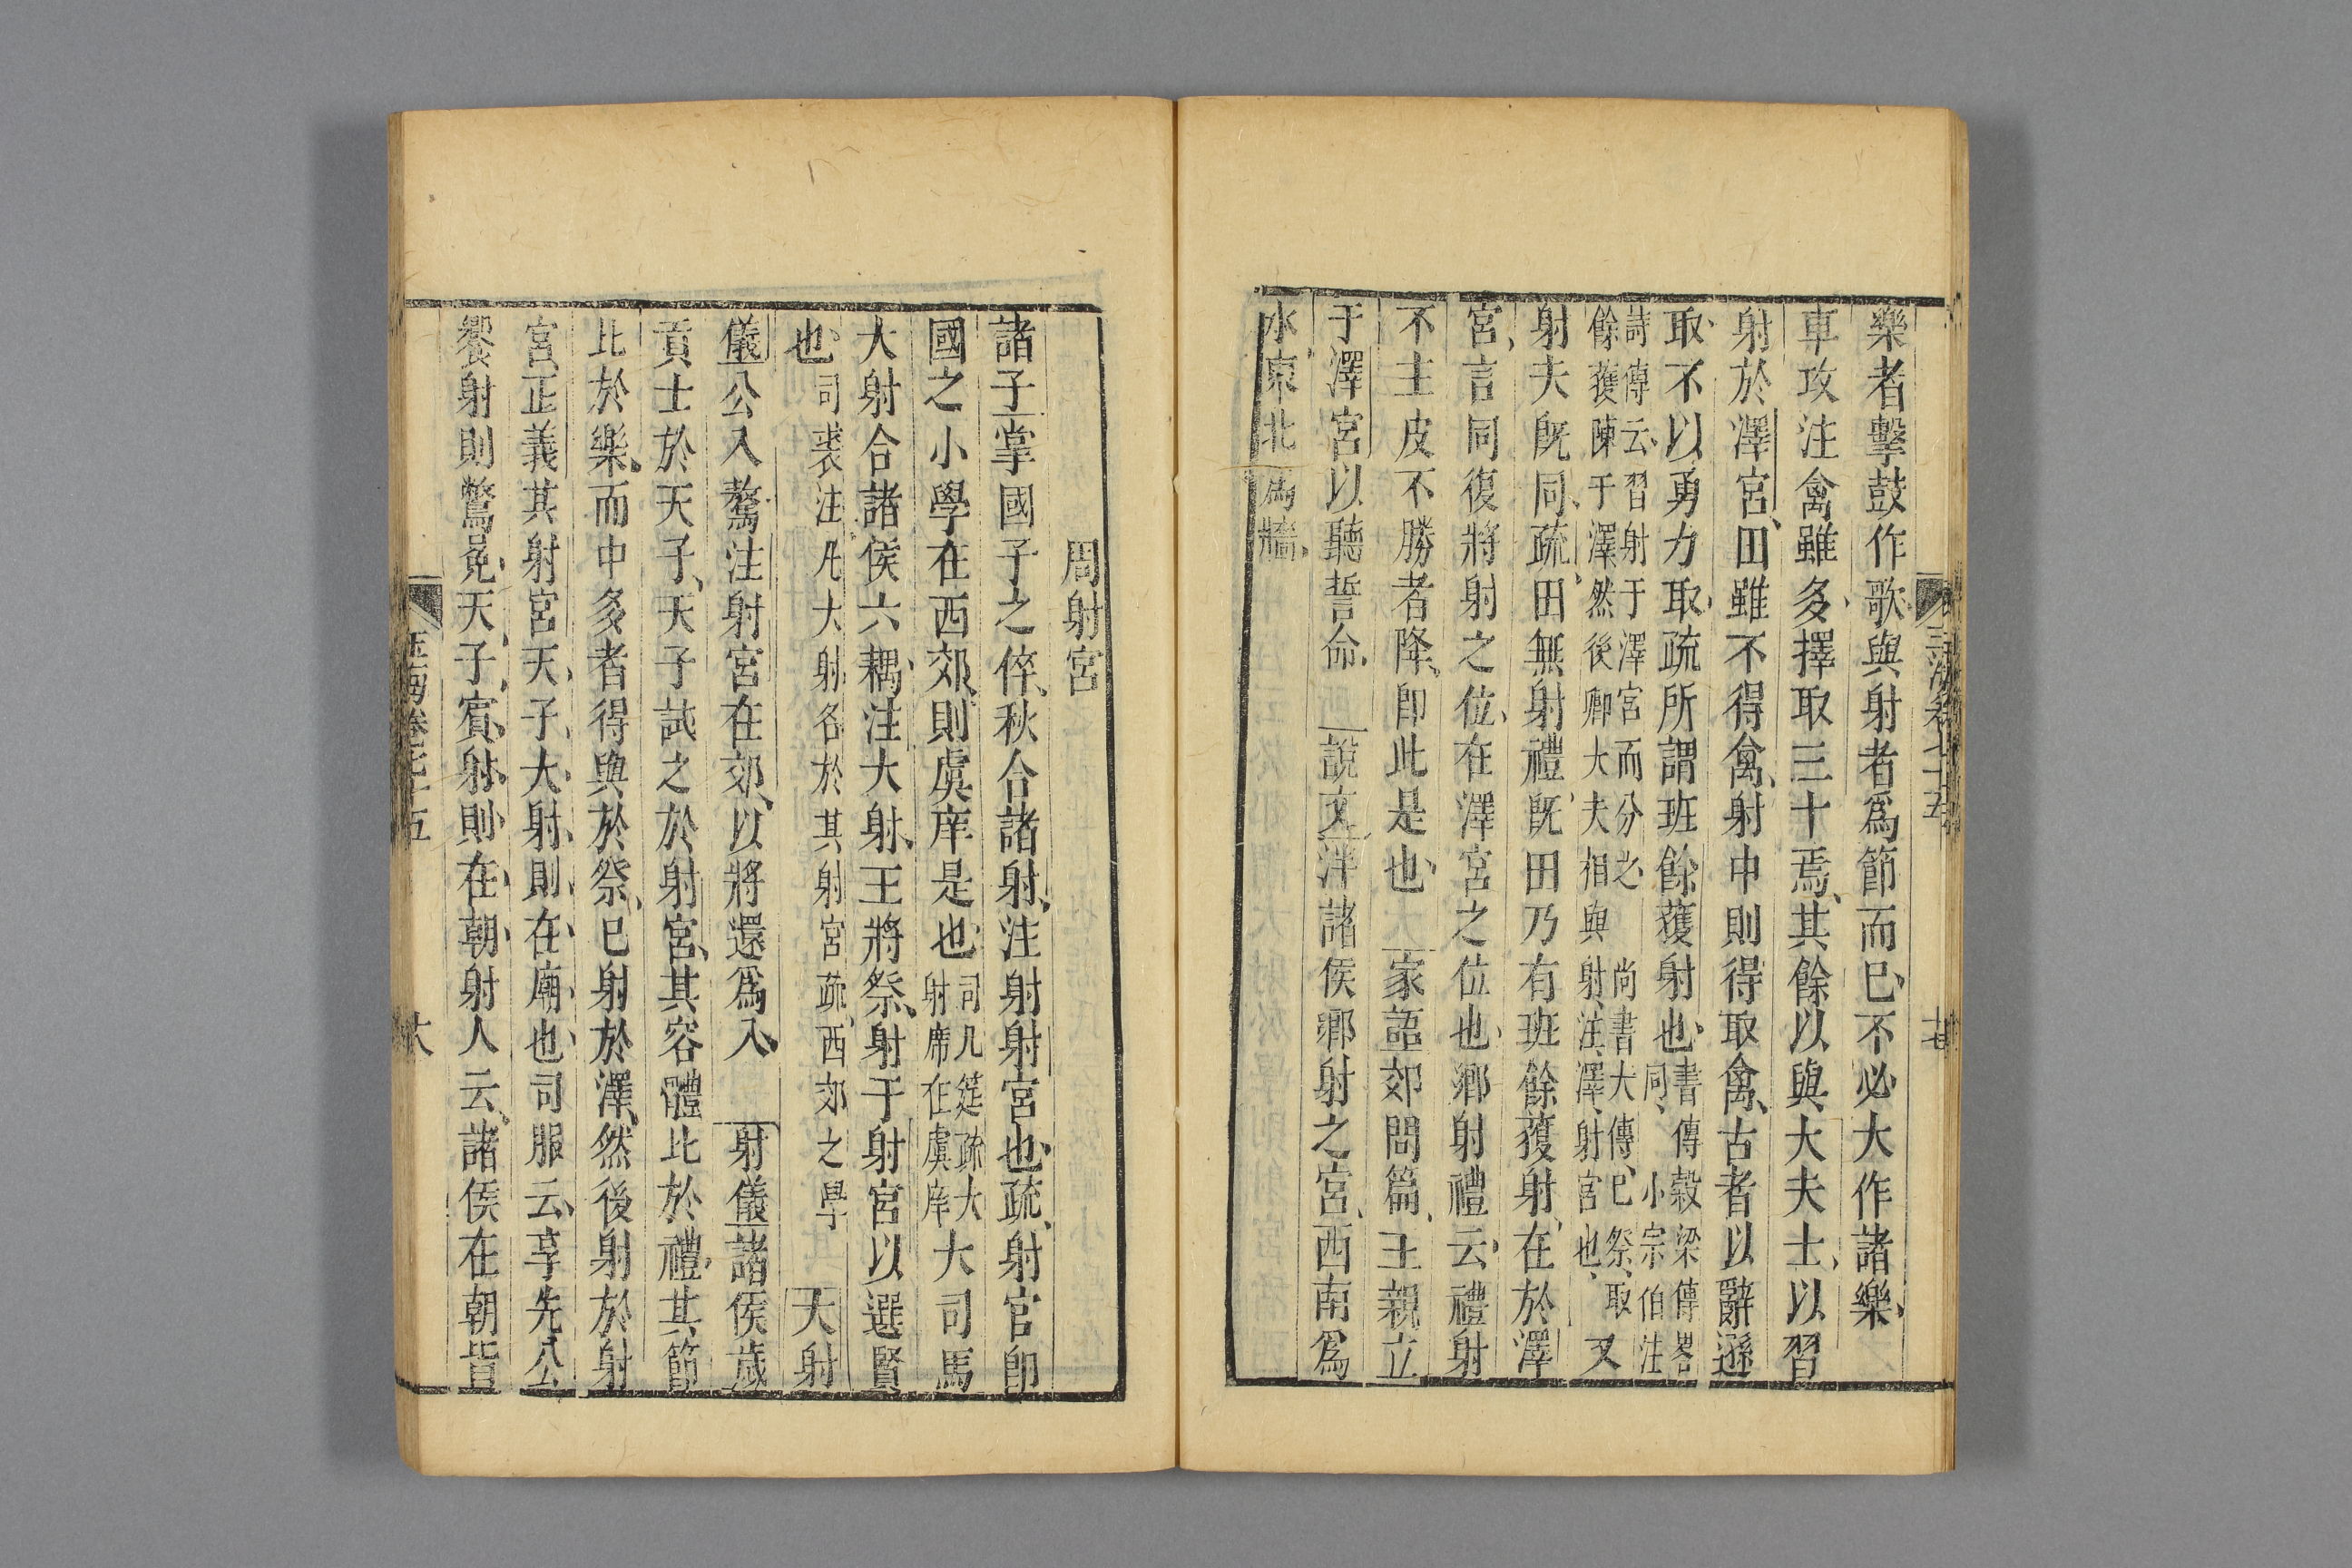 玉海卷七十五 十七
樂者擊鼓作歌與射者爲節而已不必大作諸樂
車攻注禽雖多擇取三十焉其餘以與大夫士以習
射於澤宮田雖不得禽射中則得取禽古者以辭遜
取不以勇力取疏所謂班餘獲射也書傳穀梁傳畧同小宗伯注
詩傳云習射于澤宮而分之餘獲陳于澤然後卿大夫相與射尚書大傳已祭取注澤射宮也又
射夫旣同疏田無射禮旣田乃有班餘獲射在於澤
宮言同復將射之位在澤宮之位也鄉射禮云禮射
不主皮不勝者降卽此是也家語郊問篇王親立
于澤宮以聽誓命說文泮諸侯鄉射之宮西南爲
水東北爲牆
周射宮
諸子掌國子之倅秋合諸射注射射宮也疏射官卽
國之小學在西郊則虞庠是也司几筵疏大射席在虞庠大司馬
大射合諸侯六耦注大射王將祭射于射宮以選賢
也司裘注凡大射各於其射宮疏西郊之學天射
儀公入驁注射宮在郊以將還爲入射儀諸侯歲
貢士於天子天子試之於射宮其容體比於禮其節
比於樂而中多者得與於祭已射於澤然後射於射
宮正義其射宮天子大射則在廟也司服云享先公
饗射則鷩冕天子賓射則在朝射人云諸侯在朝皆
玉海卷七十五 大